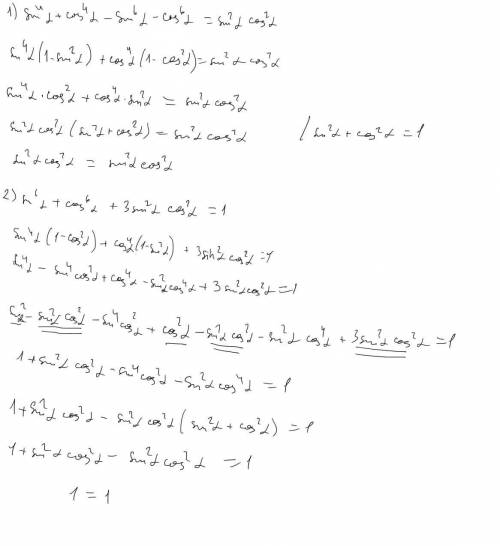 1) sin⁴α + cos⁴α - sin⁶α - cos⁶α = sin²α cos²α
sin⁴α (1 - sin²α) + cos⁴α (1 - cos²α) = sin²α cos²α
sin⁴α · cos²α + cos⁴α · sin²α = sin²α cos²α
sin²α cos²α (sin²α + cos²α) = sin²α cos²α / sin²α + cos²α = 1
sin²α cos²α = sin²α cos²α
2) sin⁶α + cos⁶α + 3 sin²α cos²α = 1
sin⁴α (1 - cos²α) + cos⁴α (1 - sin²α) + 3 sin²α cos²α = 1
sin⁴α - sin⁴α cos²α + cos⁴α - sin²α cos⁴α + 3 sin²α cos²α = 1
sin²α - sin²α cos²α - sin⁴α cos²α + cos²α - sin²α cos²α - sin²α cos⁴α + 3 sin²α cos²α = 1
1 + sin²α cos²α - sin⁴α cos²α - sin²α cos⁴α = 1
1 + sin²α cos²α - sin²α cos²α (sin²α + cos²α) = 1
1 + sin²α cos²α - sin²α cos²α = 1
1 = 1